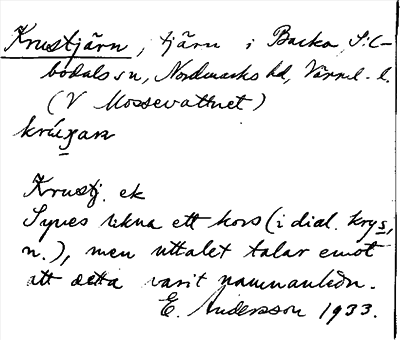 Krustjärn, tjärn i Backa, Sil-
bodals sn, Nordmarks hd, Värml. l.
(V Mossevattnet)
Krustj. ek
Synes likna ett kors (i dial. krys,
n.), men uttalet talar emot
att detta varit namnanledn.
E. Andersson 1933.